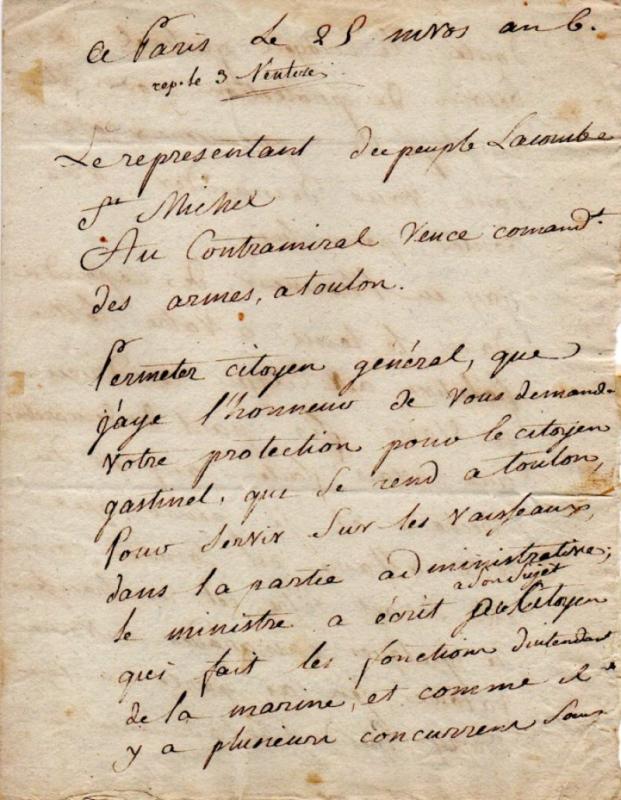 a Paris Le 25 nivos an 6.
rep. le 3 Ventose
Le representant du peuple Lacombe
St Michel
Au Contramiral Vence comandt.
des armes, a toulon.
Permeter citoyen général, que
j'aye l'honneur de vous demander
votre protection pour le citoyen
gastinel, qui se rend a toulon,
pour servir sur les vaisseaux,
dans la partie administrative;
a son sujet
le ministre a écrit au Citoyen
qui fait les fonctions d'intendant
de la marine, et comme il
y a plusieurs concurrens sans